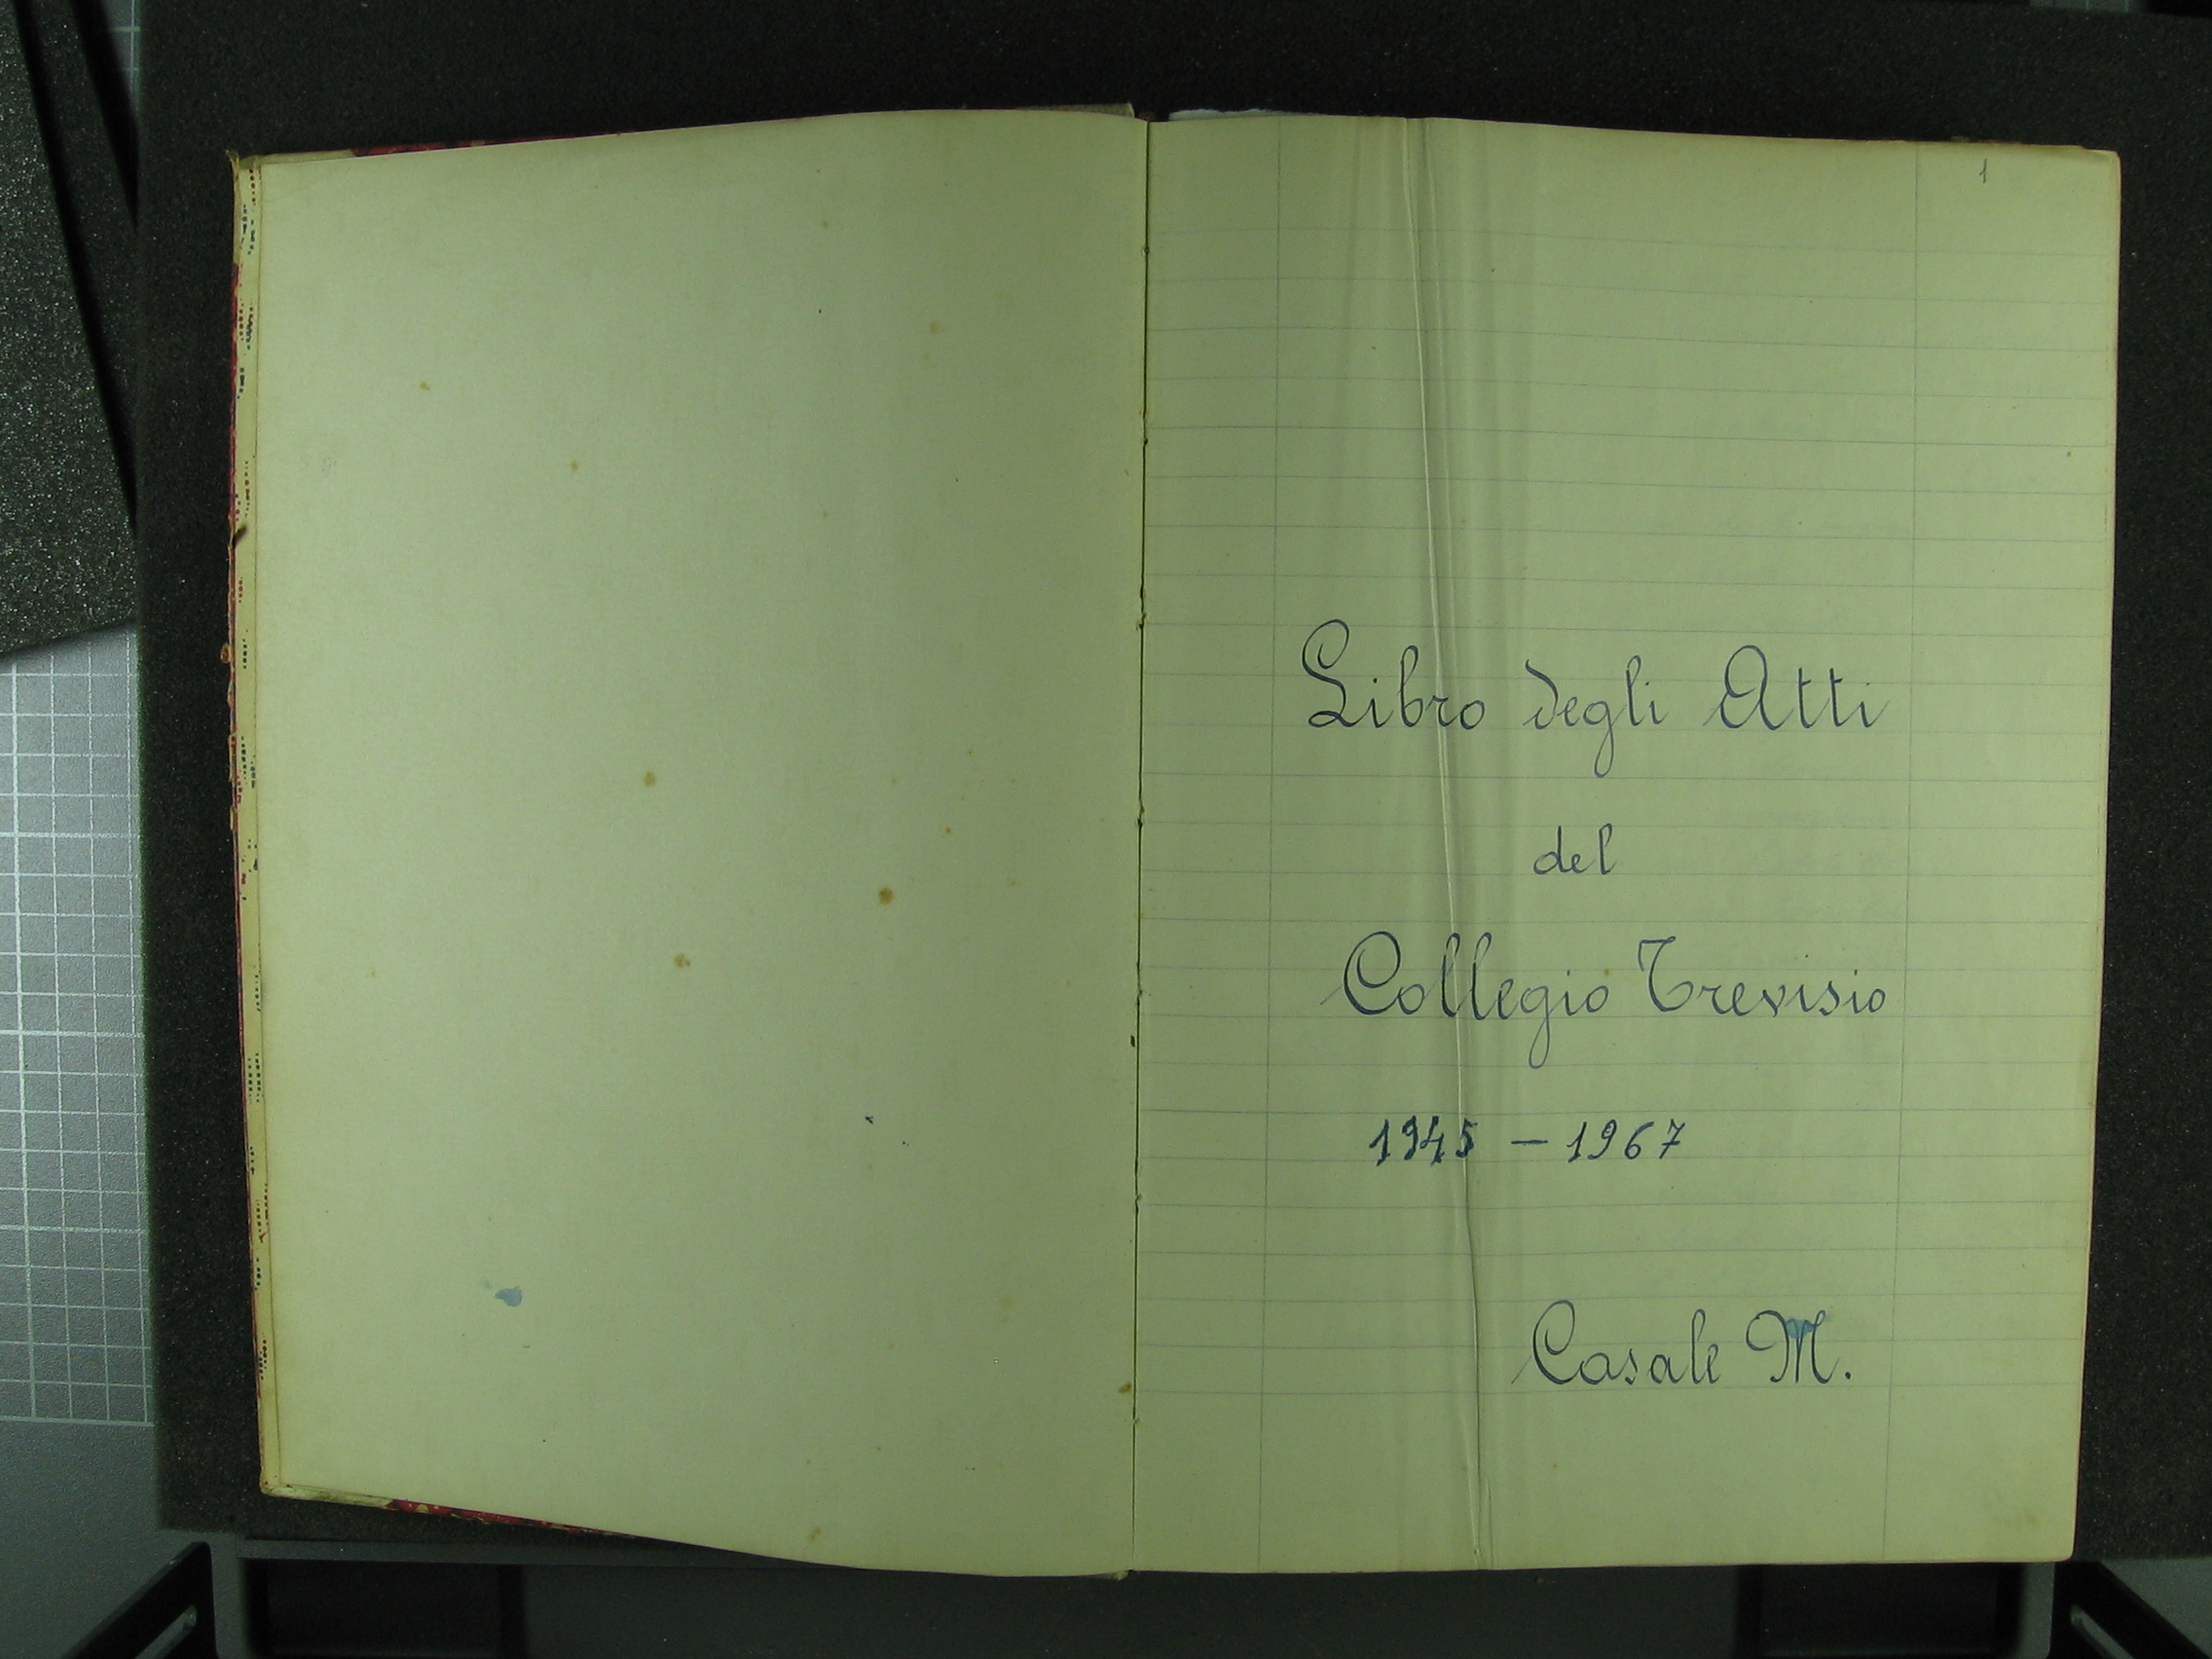 1
Libro degli Atti
del
Collegio Trevisio
1945 – 1967
Casale M.